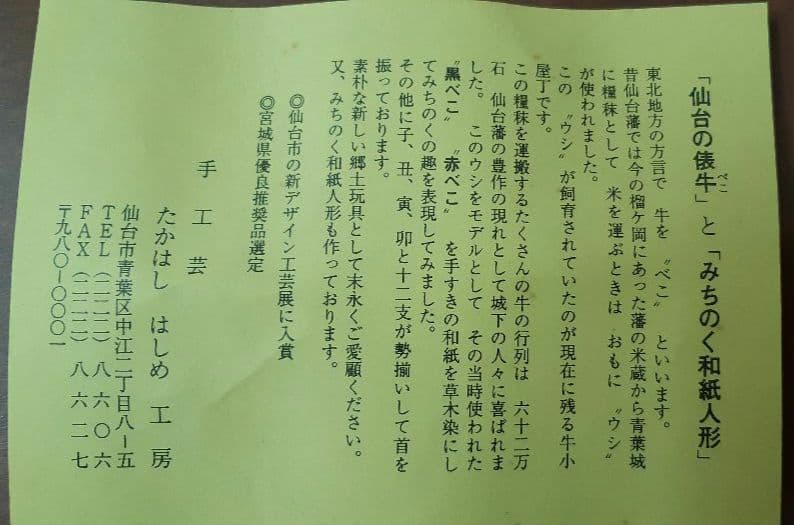 「仙台の俵牛」と「みちのく和紙人形」
べこ
東北地方の方言で　牛を　〝べこ〟　といいます。
昔仙台藩では今の榴ケ岡にあった藩の米蔵から青葉城
に糧秣として　米を運ぶときは　おもに　〝ウシ〟
が使われました。
この　〝ウシ〟が飼育されていたのが現在に残る牛小
屋丁です。
この糧秣を運搬するたくさんの牛の行列は　六十二万
石　仙台藩の豊作の現れとして城下の人々に喜ばれま
した。　このウシをモデルとして　その当時使われた
〝黒べこ〟　〝赤べこ〟　を手すきの和紙を草木染にし
てみちのくの趣を表現してみました。
その他に子、丑、寅、卯と十二支が勢揃いして首を
振っております。
素朴な新しい郷土玩具として末永くご愛顧ください。
又、みちのく和紙人形も作っております。
◎仙台市の新デザイン工芸展に入賞
◎宮城県優良推奨品選定
手工芸
たかはし　はしめ　工房
仙台市青葉区中江二丁目八ー五
TEL（二二二）八六〇六
FAX（二二二）八六二七
〒九八〇ー〇〇〇一